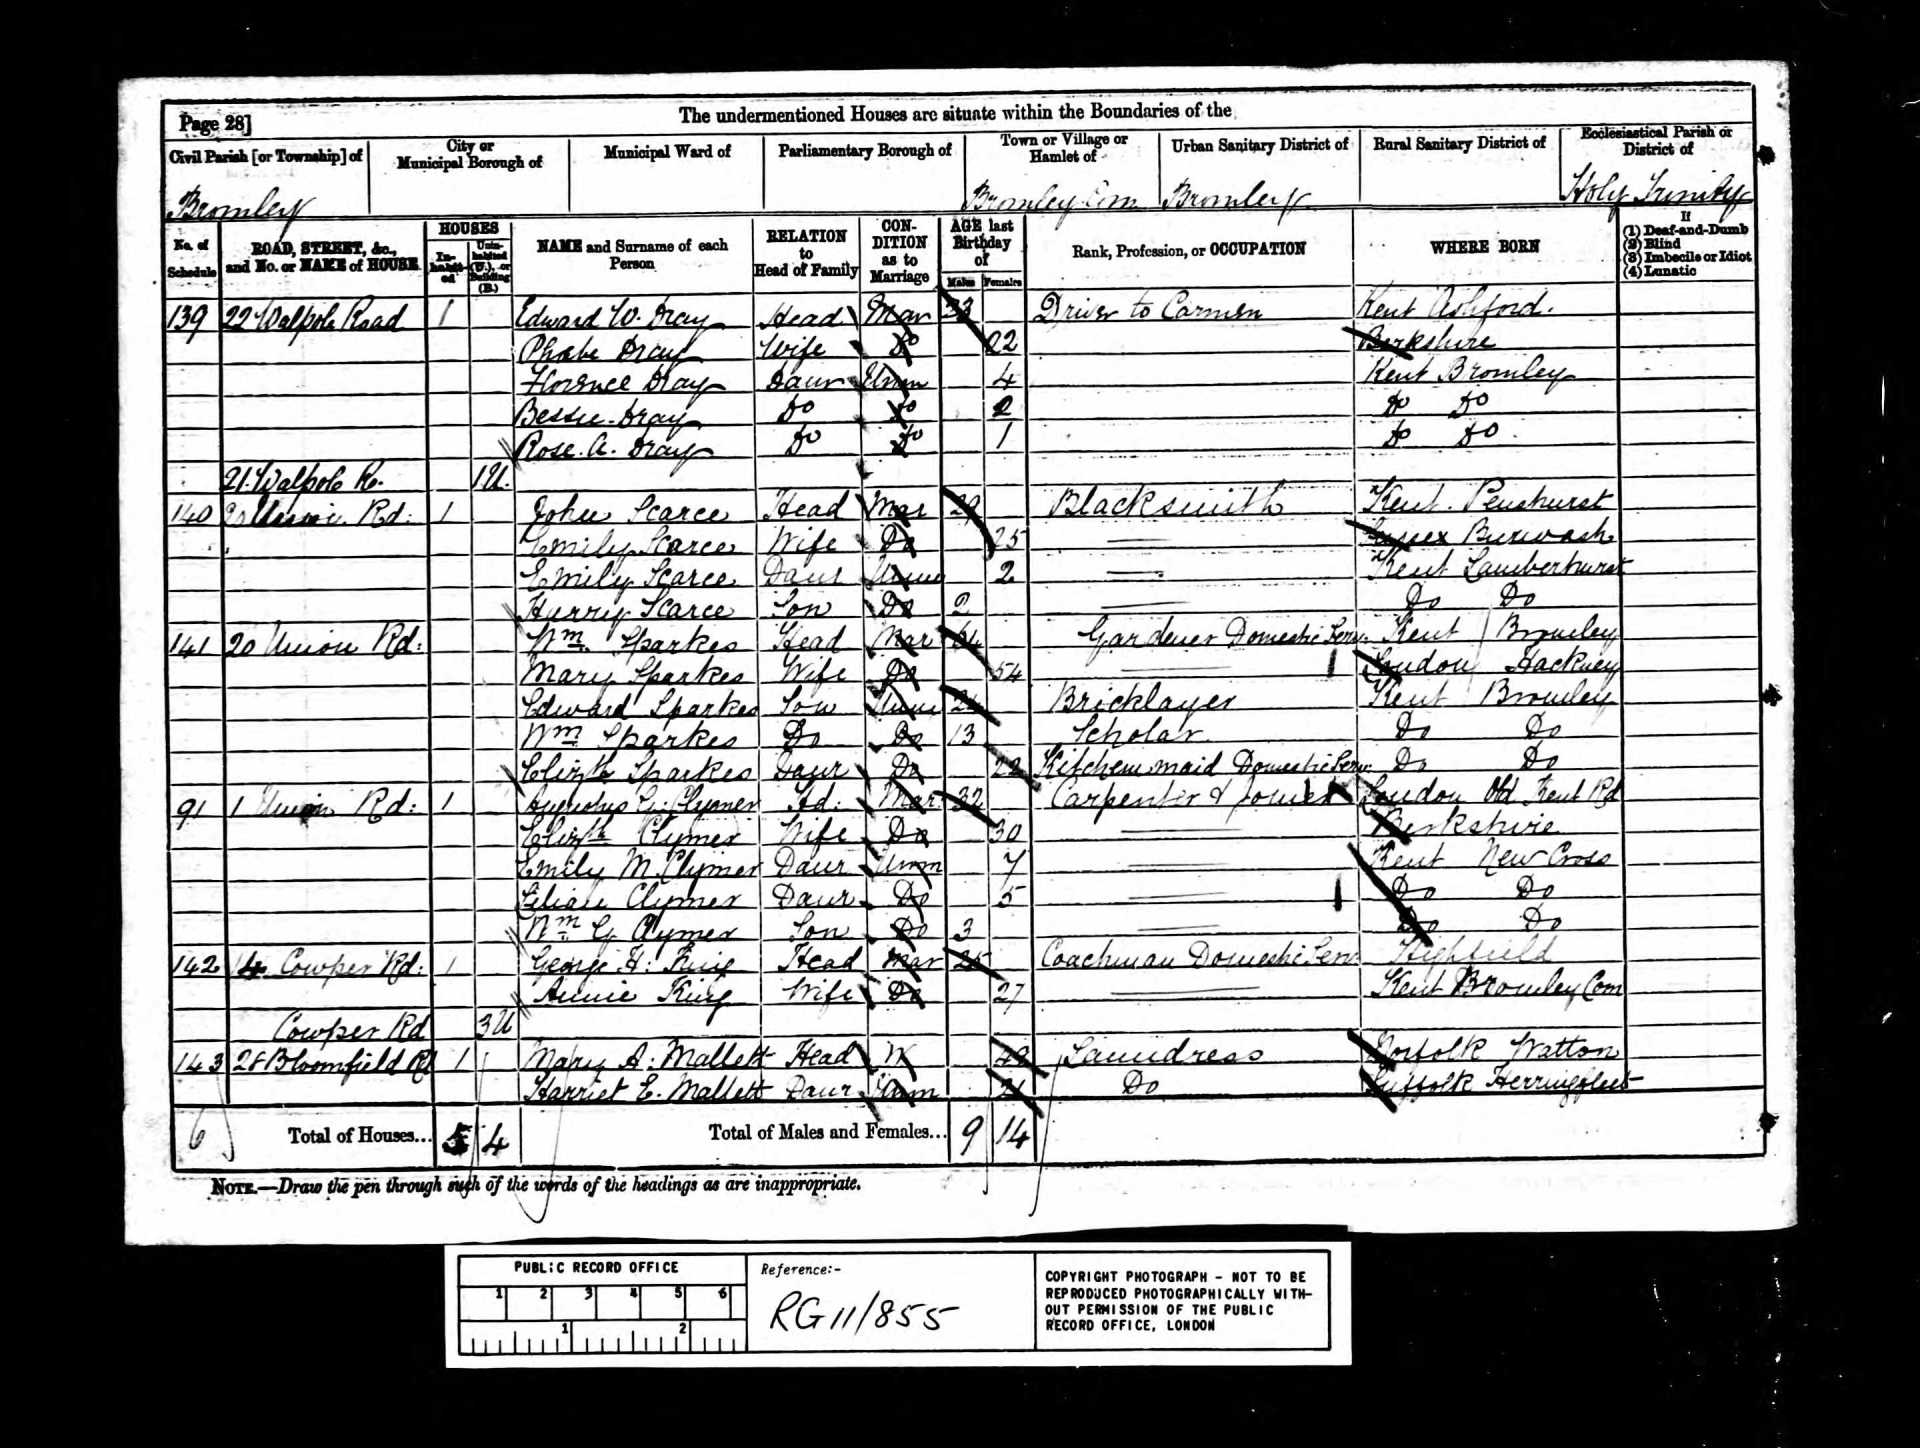 Page 28]
The undermentioned Houses are situate within the Boundaries of the
Civil Parish [or Township] of
City or Municipal Borough of
Municipal Ward of
Parliamentary Borough of
Town or Village or Hamlet of
Urban Sanitary District of
Rural Sanitary District of
Ecclesiastical Parish or District of
Bromley Bromley Com Bromley Holy Trinity
No. of Schedule
ROAD, STREET, &c., and No. or NAME of HOUSE
HOUSES
In-habited
Unin-habited (U.), or Building (B.)
NAME and Surname of each Person
RELATION to Head of Family
CON-DITION as to Marriage
AGE last Birthday of
Males Females
Rank, Profession, or OCCUPATION
WHERE BORN
If
(1) Deaf-and-Dumb
(2) Blind
(3) Imbecile or Idiot
(4) Lunatic
139 22 Walpole Road 1 Edward W. Dray Head Mar 23 Driver to Carmen Kent Ashford.
Phœbe Dray Wife Do 22 Berkshire
Florence Dray Daur Unm 4 Kent Bromley
Bessie Dray Do Do 2 Do Do
Rose. A. Dray Do Do 1 Do Do
21 Walpole R. 1U.
140 Rd: 1 John Scarce Head Mar 29 Blacksmith Kent. Penshurst
Emily Scarce Wife Do 25 Sussex Burwash
Emily Scarce Daur Unm 2 Kent Lamberhurst
Harry Scarce Son Do 2 Do Do
141 20 Union Rd: Wm. Sparkes Head Mar Gardener Domestic Serv. Kent Bromley
Mary Sparkes Wife Do 54 London Hackney
Edward Sparkes Son Unm Bricklayer Kent Bromley
Wm Sparkes Do Do 13 Scholar Do Do
Elizth Sparkes Daur Do 22 Kitchenmaid Domestic Serv. Do Do
91 1 Union Rd: 1 Augustus Clymer Hd: Mar. 32 Carpenter & Joiner London Old Kent Rd
Elizth Clymer Wife Do 30 Berkshire
Emily M. Clymer Daur Unm 7 Kent New Cross
Lilian Clymer Daur Do 5 Do Do
Wm G Clymer Son Do 3 Do Do
142 14 Cowper Rd: 1 George H: King Head Mar 25 Coachman Domestic Serv Highfield
Annie King Wife Do 27 Kent Bromley Com
Cowper Rd 3U
143 28 Bloomfield Rd 1 Mary A: Mallett Head W 49 Laundress Norfolk Watton
Harriet E. Mallett Daur Unm 21 Do Suffolk Herringfleet
6 Total of Houses... 5 4 Total of Males and Females... 9 14
NOTE.—Draw the pen through such of the words of the headings as are inappropriate.
PUBLIC RECORD OFFICE
1 2 3 4 5 6
1 2
Reference:-
RG 11/855
COPYRIGHT PHOTOGRAPH - NOT TO BE
REPRODUCED PHOTOGRAPHICALLY WITH-
OUT PERMISSION OF THE PUBLIC
RECORD OFFICE, LONDON